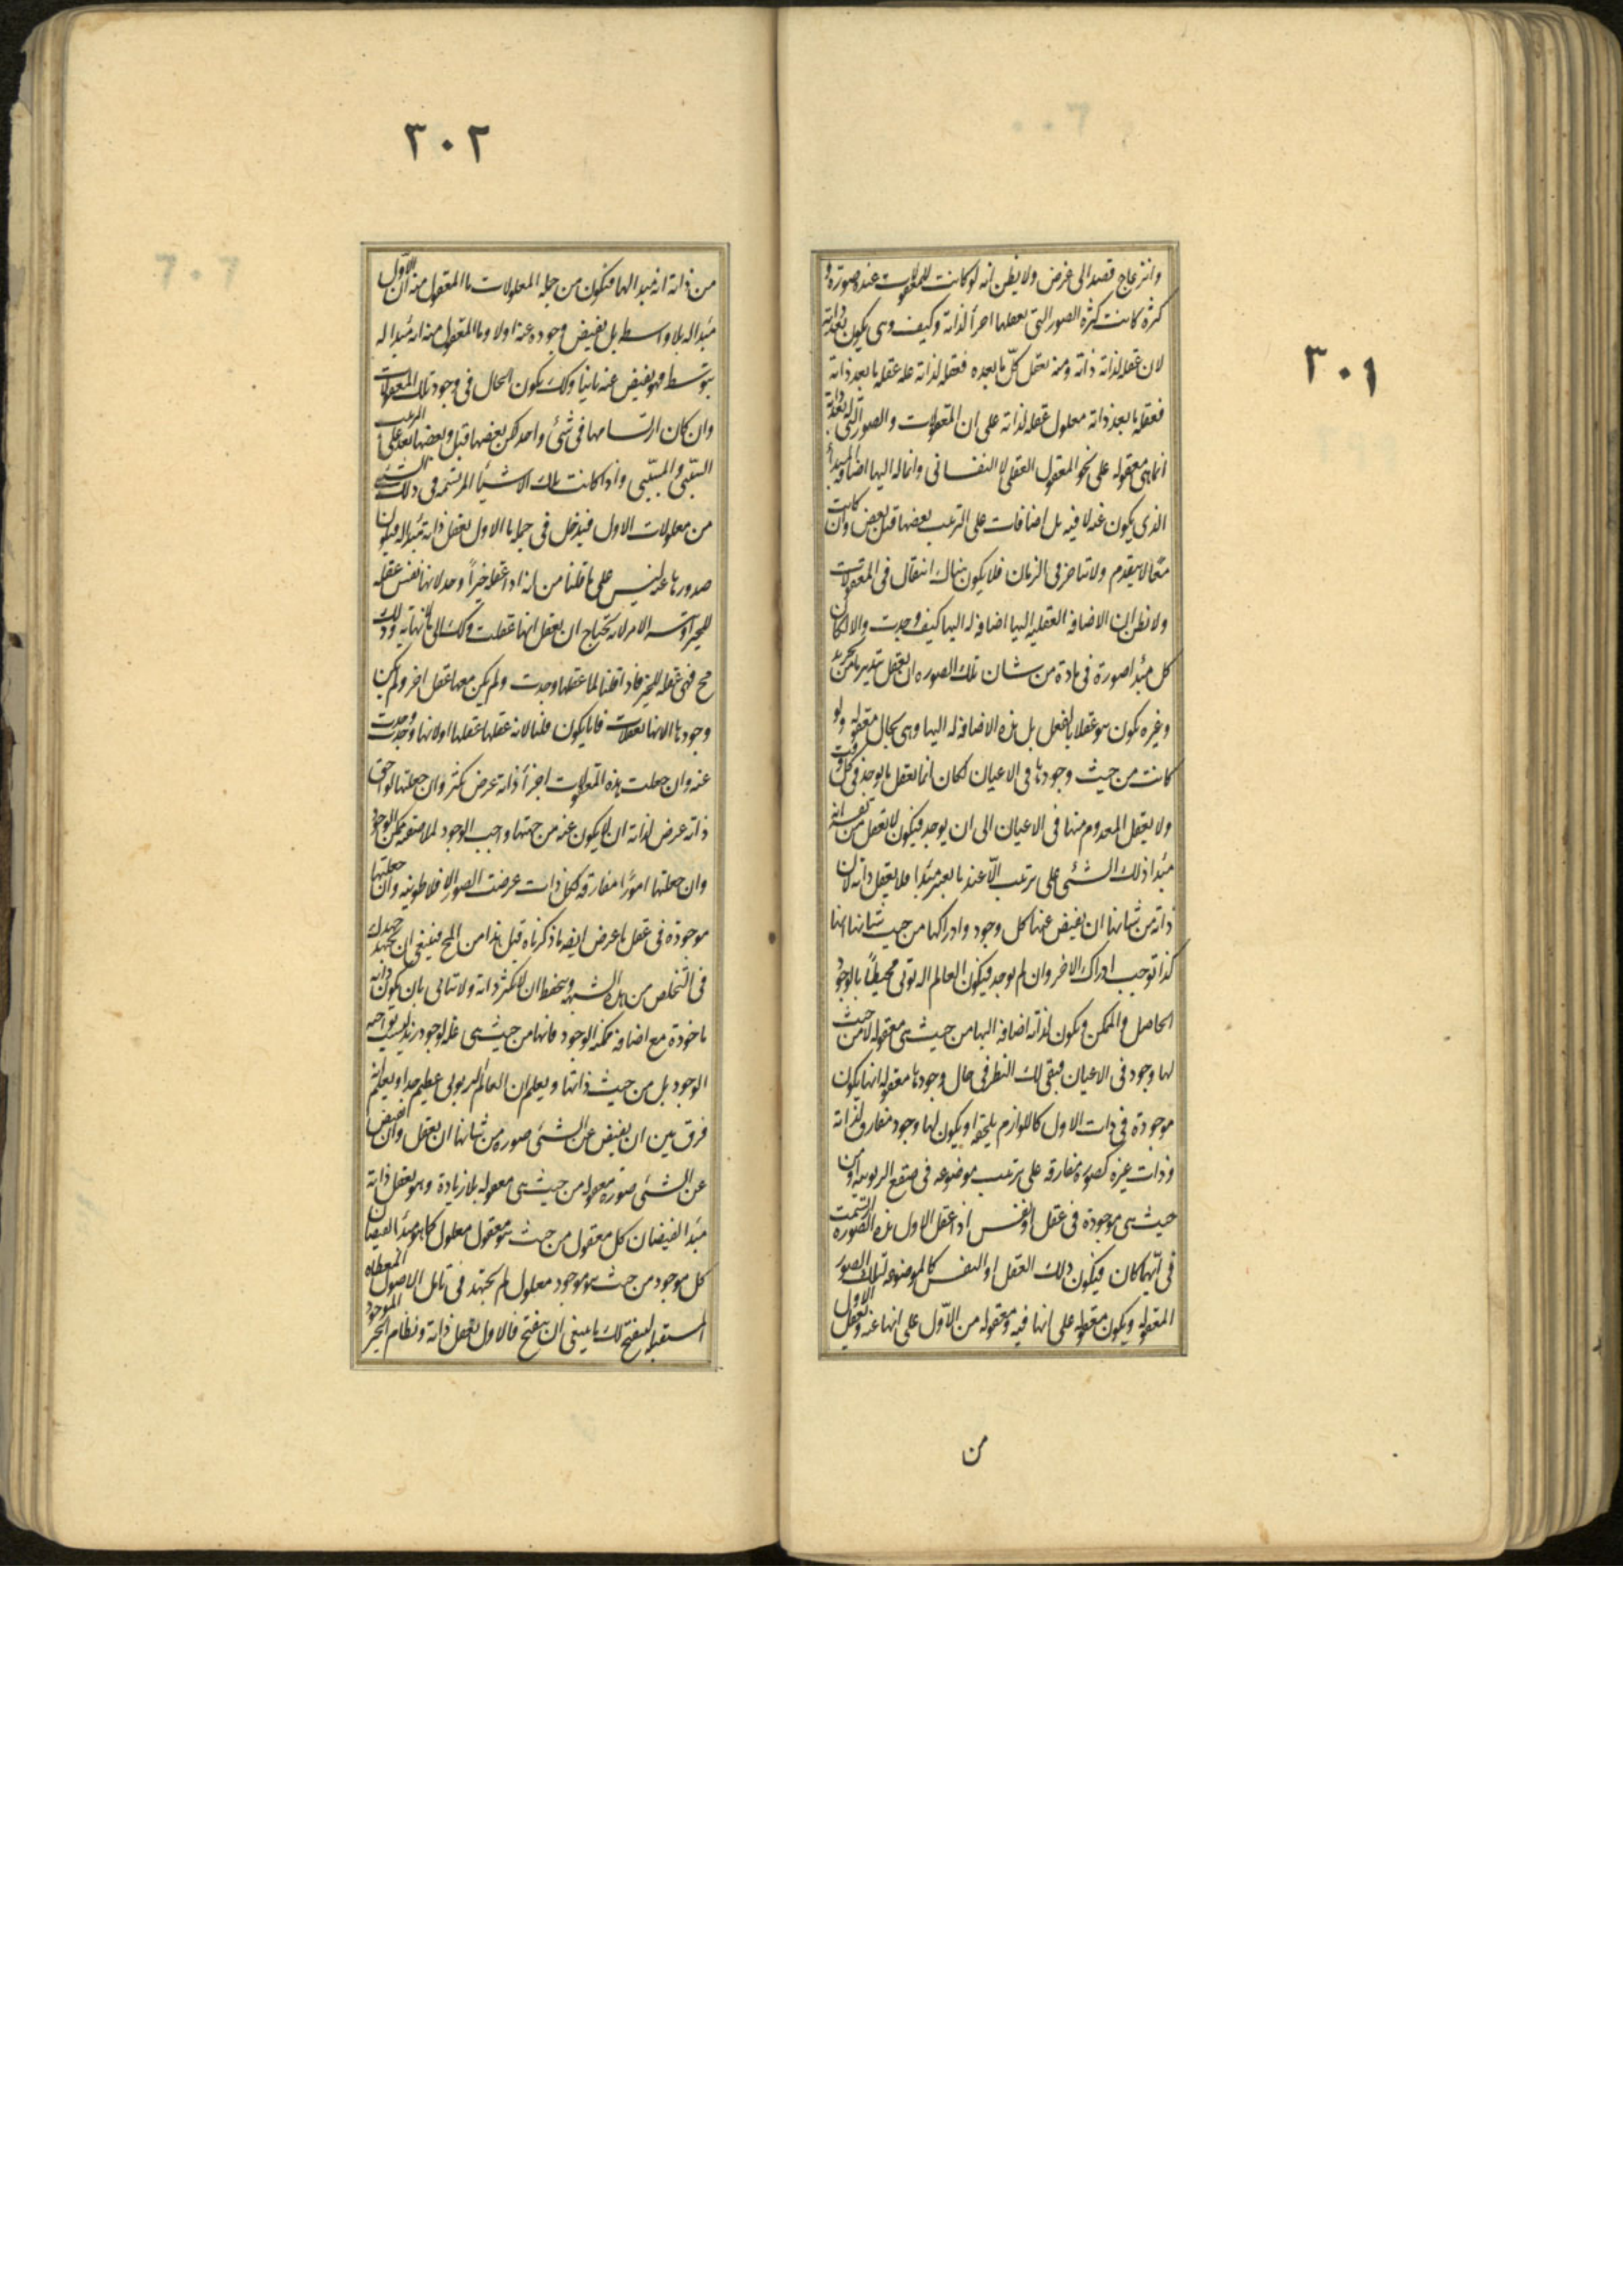 ٣٠١
وانزعاج قصد الى غرض ولا يظن انه لو كانت للمعقولات عنده صورة و
كثرة كانت كثرة الصور التى يعقلها اجزأ لذاته وكيف وهى يكون بعد ذاته
لان عقله لذاته ذاته ومنه يعقل كلّ ما بعده فعقله لذاته عله عقله ما بعد ذاته
فعقله ما بعد ذاته معلول عقله لذاته على ان المعقولات والصور التى له بعد ذاته
انما هى معقوله على نحو المعقول العقلى لا النفسانى وانما له اليها اضافه المبدأ
الذى يكون عنه لا فيه بل اضافات على الترتيب بعضها قبل بعض وان كانت
معًا لا يتقدم ولا يتاخر فى الزمان فلا يكون هناك انتقال فى المعقولات
ولا نظن ان الاضافه العقليه اليها اضافه له اليها كيف وجدت والا لكان
كل مبدأ صورة فى مادة من شان تلك الصوره ان يعقل بتدبير ما من تجريد
وغيره يكون هو عقلا بالفعل بل هذه الاضافه له اليها وهى بحال معقوله ولو
كانت من حيث وجودها فى الاعيان لكان انما يعقل ما يوجد فى كل وقت
ولا يعقل المعدوم منها فى الاعيان الى ان يوجد فيكون لا يعقل من نفسه انه
مبدأ ذلك الشئ على ترتيب الّا عند ما يصير مبدأ فلا يعقل ذاته لان
ذاته من شانها ان يفيض عنها كل وجود وادراكها من حيث شانها انها
كذا توجب ادراك الاخر وان لم يوجد فيكون العالم الربوبى محيطًا بالوجود
الحاصل والممكن ويكون لذاته اضافه اليها من حيث هى معقوله لا من حيث
لها وجود فى الاعيان فبقى لك النظر فى حال وجودها معقوله انها يكون
موجودة فى ذات الاول كاللوازم يلحقه او يكون لها وجود مفارق لذاته
وذات غيره كصوره مفارقه على ترتيب موضوعه فى صقع الربوبيه او من
حيث هى موجودة فى عقل او نفس اذا عقل الاول هذه الصوره ارتسمت
فى ايّهما كان فيكون ذلك العقل او النفس كالموضوعه لتلك الصور
المعقوله ويكون معقوله على انها فيه ومعقوله من الاّول على انها عنه ويعقل الاول
من
٣٠٢
من ذاته انه مبدا لها فيكون من جمله المعلولات ما المعقول منه ان الاول
مبدأ له بلا واسطه بل يفيض وجوده عنه اولا وما المعقول منه انه مبدا له
بتوسط فهو يفيض عنه ثانيًا وكذلك يكون الحال فى وجود تلك المعقولات
وان كان ارتسامها فى شئ واحد لكن بعضها قبل وبعضها بعد على الترتيب
السببّى والمسبّبى واذا كانت تلك الاشيأ المرتسمه فى ذلك الشئ
من معلولات الاول فيدخل فى جمله ما الاول يعقل ذاته مبدأ له فيكون
صدورها عنه ليس على ما قلنا من انه اذا عقله خيرًا وجد لانها نفس عقله
للخير او يتسلسل الامر لانه يحتاج ان يعقل انها عقلت وكذلك الى ما لا نهايه وذلك
مح فهى عقله للخير فاذا قلنا لما عقلها وجدت ولم يكن معها عقل اخر ولم يكن
وجودها الا انها تعقلات فانما يكون قلنا لانه عقلها عقلها او لانها وجدت
عنه وان جعلت هذه المعقولات اجزأ ذاته عرض تكثر وان جعلتها لواحق
ذاته عرض لذاته ان لا يكون عنه من جهتها واجب الوجود لملاصقه ممكن الوجود
وان جعلتها امورًا مفارقه لكل ذات عرضت الصور الافلاطونيه وان جعلتها
موجوده فى عقل ما عرض ايضه ما ذكرناه قبل هذا من المح فينبغى ان تجتهد جهدك
فى التخلص من هذه الشبهه وتتحفظ ان لا يكثر ذاته ولا تبالى بان يكون ذاته
ماخوذة مع اضافه ممكنه الوجود فانها من حيث هى عله لوجود زيد ليست بواجبه
الوجود بل من حيث ذاتها ويعلم ان العالم الربوبى عظيم جدا ويعلم انه
فرق بين ان يفيض عن الشئ صوره من شانها ان يعقل وان يفيض
عن الشئ صورة معقوله من حيث هى معقوله بلا زيادة وهو يعقل ذاته
مبدأ لفيضان كل معقول من حيث هو معقول معلول كما هو مبدأ لفيضان
كل موجود من حيث هو موجود معلول ثم تجتهد فى تامل الاصول المعطاه
المستقبله ليفتح لك ما ينبغى ان يفتح فالاول يعقل ذاته ونظام الخير الموجود